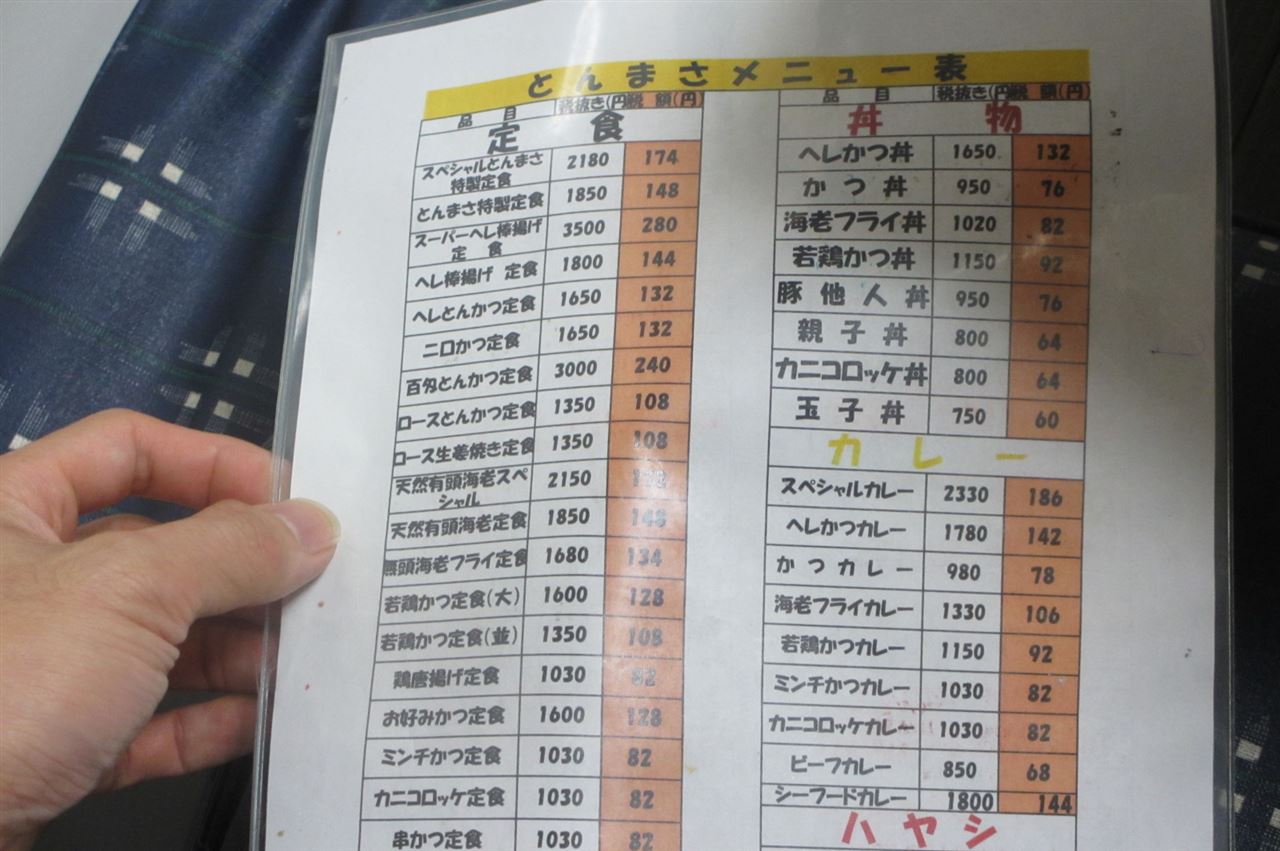 とんまさメニュー表
品 目 税抜き(円 税 額(円)
定 食
スペシャルとんまさ特製定食 2180 174
とんまさ特製定食 1850 148
スーパーヘレ棒揚げ定 食 3500 280
ヘレ棒揚げ 定食 1800 144
ヘレとんかつ定食 1650 132
二口かつ定食 1650 132
百匁とんかつ定食 3000 240
ロースとんかつ定食 1350 108
ロース生姜焼き定食 1350 108
天然有頭海老スペシャル 2150
天然有頭海老定食 1850 148
無頭海老フライ定食 1680 134
若鶏かつ定食(大) 1600 128
若鶏かつ定食(並) 1350 108
鶏唐揚げ定食 1030 82
お好みかつ定食 1600 128
ミンチかつ定食 1030 82
カニコロッケ定食 1030 82
串かつ定食 1030 82
品 目 税抜き(円 税 額(円)
丼 物
ヘレかつ丼 1650 132
かつ丼 950 76
海老フライ丼 1020 82
若鶏かつ丼 1150 92
豚他人丼 950 76
親子丼 800 64
カニコロッケ丼 800 64
玉子丼 750 60
カレー
スペシャルカレー 2330 186
ヘレかつカレー 1780 142
かつカレー 980 78
海老フライカレー 1330 106
若鶏かつカレー 1150 92
ミンチかつカレー 1030 82
カニコロッケカレー 1030 82
ビーフカレー 850 68
シーフードカレー 1800 144
ハヤシ